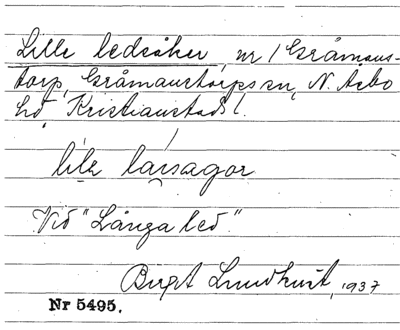 Lille ledsåker, nr 1 Gråmans-
torp, Gråmanstorps sn, N. Åsbo
hd, Kristianstads l.
lila
Vid "Långa led".
Birgit Lundkvist, 1937
Nr 5495.